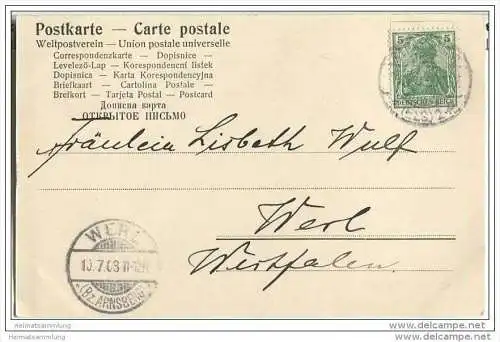 Postkarte — Carte postale
Weltpostverein — Union postale universelle
Correspondenzkarte — Dopisnice —
Levelező-Lap — Korespondencni listek
Dopisnica — Karta Korespondencyjna
Briefkaart — Cartolina Postale —
Brefkort — Tarjeta Postal — Postcard
Дописна карта
ОТКРЫТОЕ ПИСЬМО
5 5
DEUTSCHES REICH
Fräulein Lisbeth Wulf
Werl
Westfalen.
WERL
(Bz. ARNSBERG)
Heimatsammlung
Heimatsammlung
www.delcampe.net